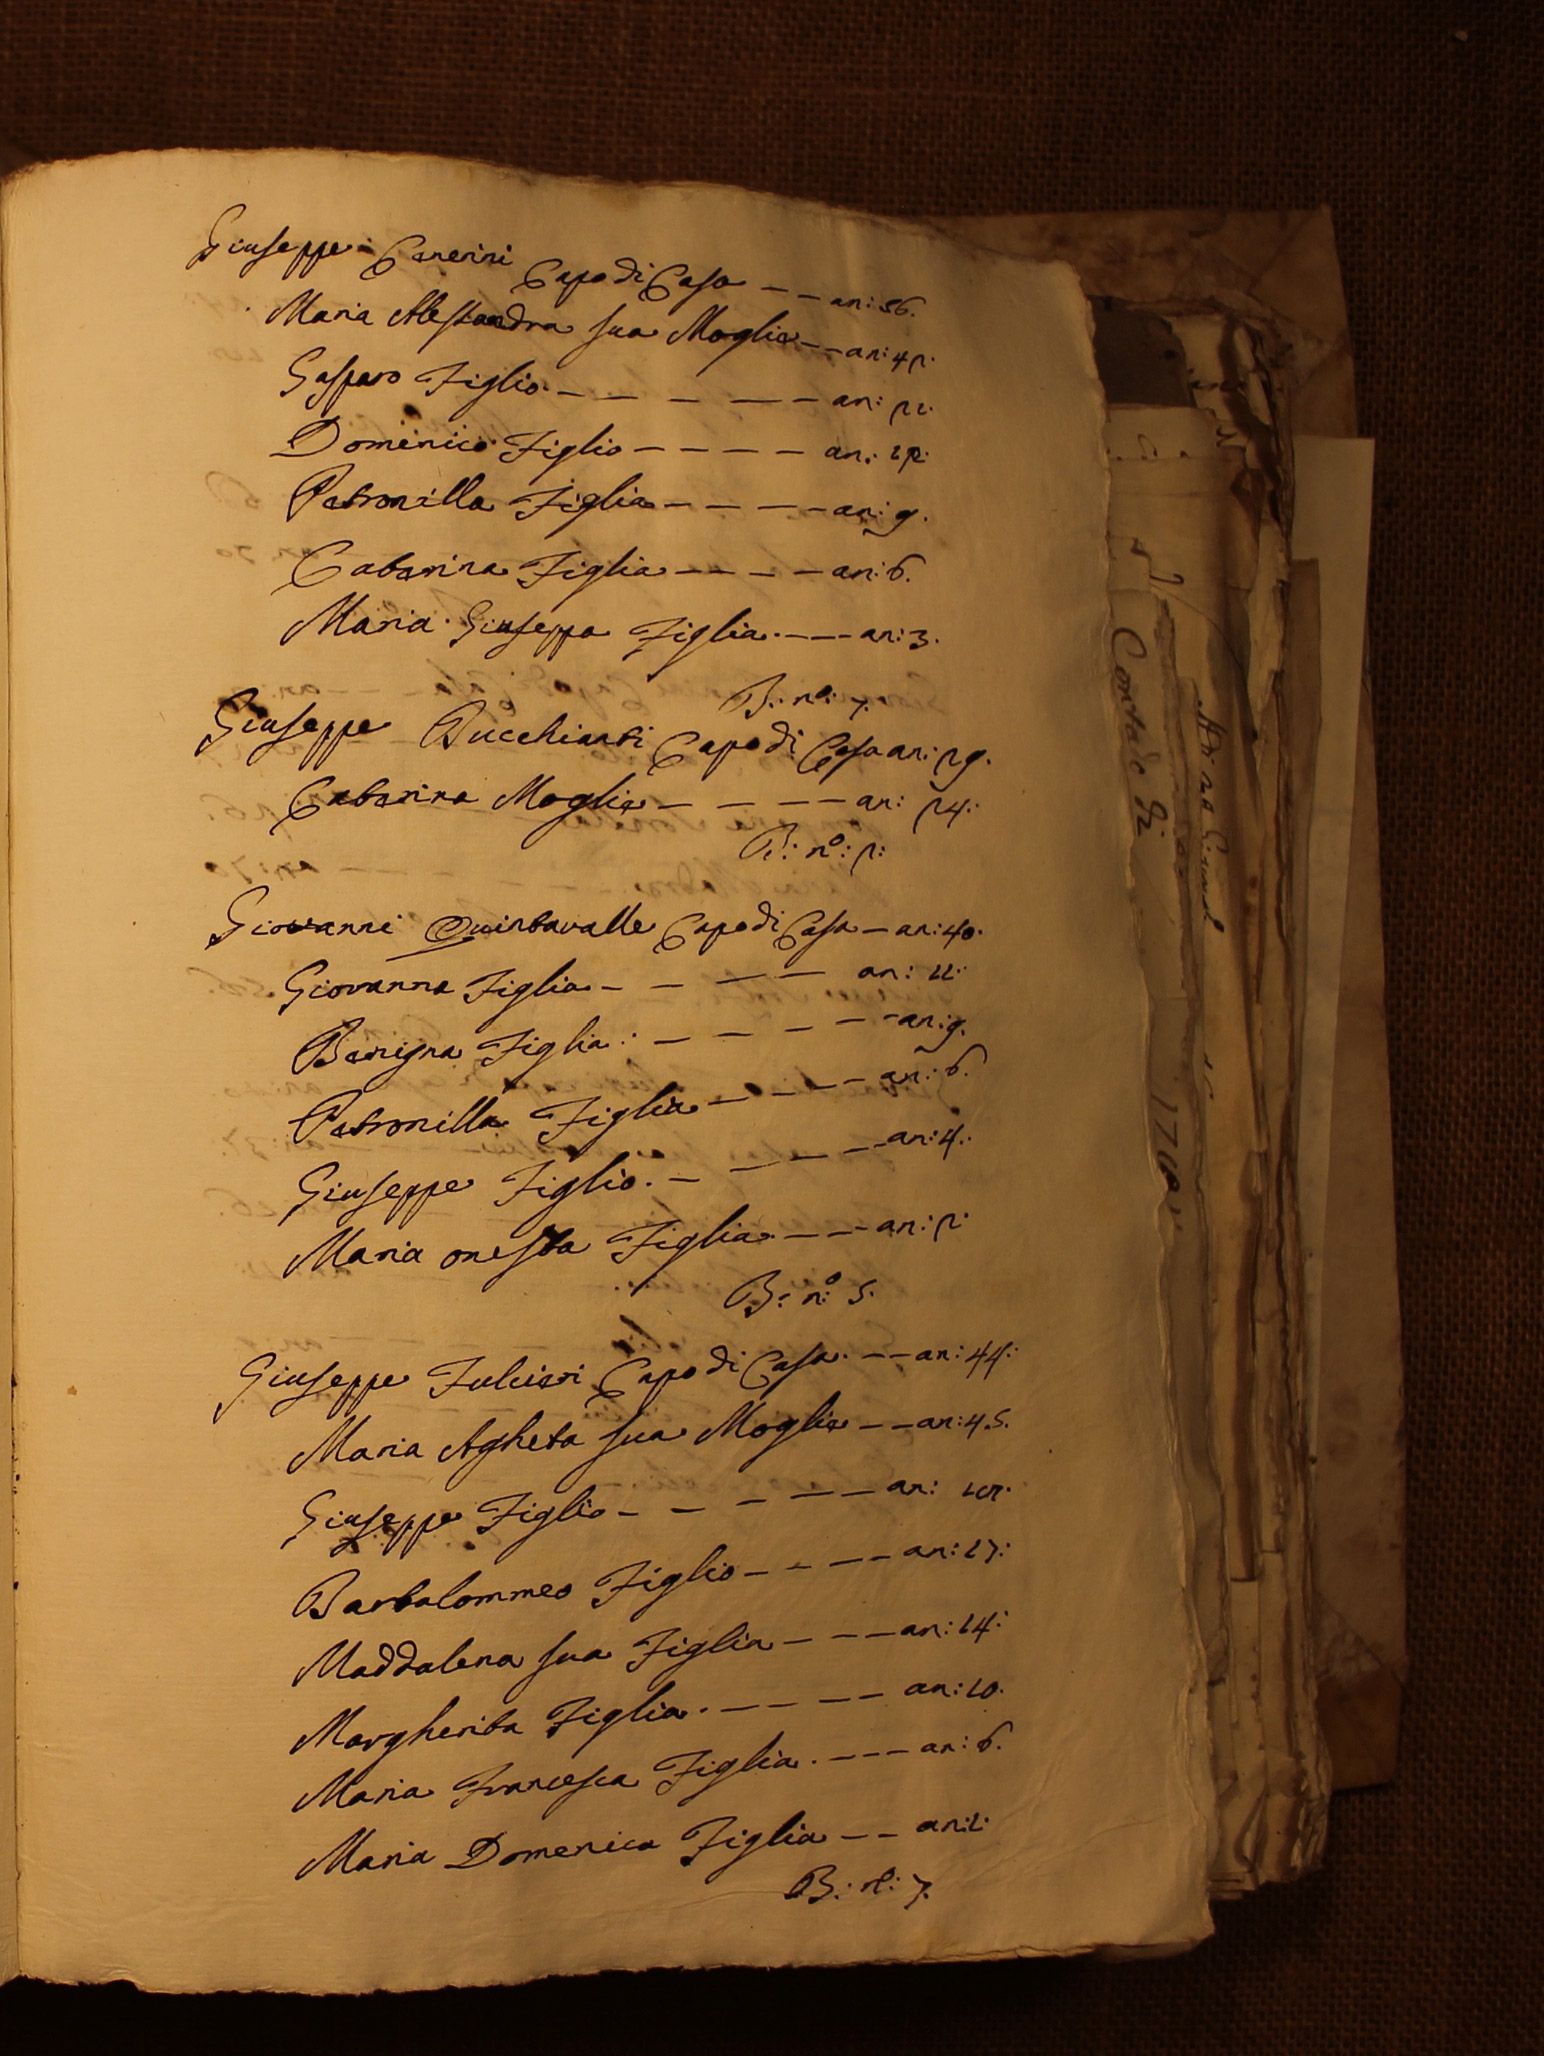 Giuseppe Cenerini Capo di Casa — — an: 56.
Maria Alessandra sua Moglie — — an: 42.
Gasparo Figlio — — — — — an: 21.
Domenico Figlio — — — — an: 12.
Petronilla Figlia — — — — an: 9.
Catarina Figlia — — — — an: 6.
Maria Giuseppa Figlia — — — an: 3.
B: n°: 7.
Giuseppe Bucchianti Capo di Casa an: 29.
Catarina Moglie — — — — an: 24:
B: n°: 2:
Giovanni Quintavalle Capo di Casa — an: 40.
Giovanna Figlia — — — — an: 11:
Benigna Figlia: — — — — an: 9.
Petronilla Figlia — — — — an: 6.
Giuseppe Figlio. — — — — an: 4.
Maria onesta Figlia — — — an: 2.
B: n° 5.
Giuseppe Fulcieri Capo di Casa. — — an: 44:
Maria Agheta sua Moglie — — an: 45.
Giuseppe Figlio — — — — — an:
Bartolommeo Figlio — — — — an: 17:
Maddalena sua Figlia — — — an: 14:
Margherita Figlia. — — — — an: 10.
Maria Francesca Figlia. — — — an: 6.
Maria Domenica Figlia — — an: 1:
B: n°: 7.
Contado di